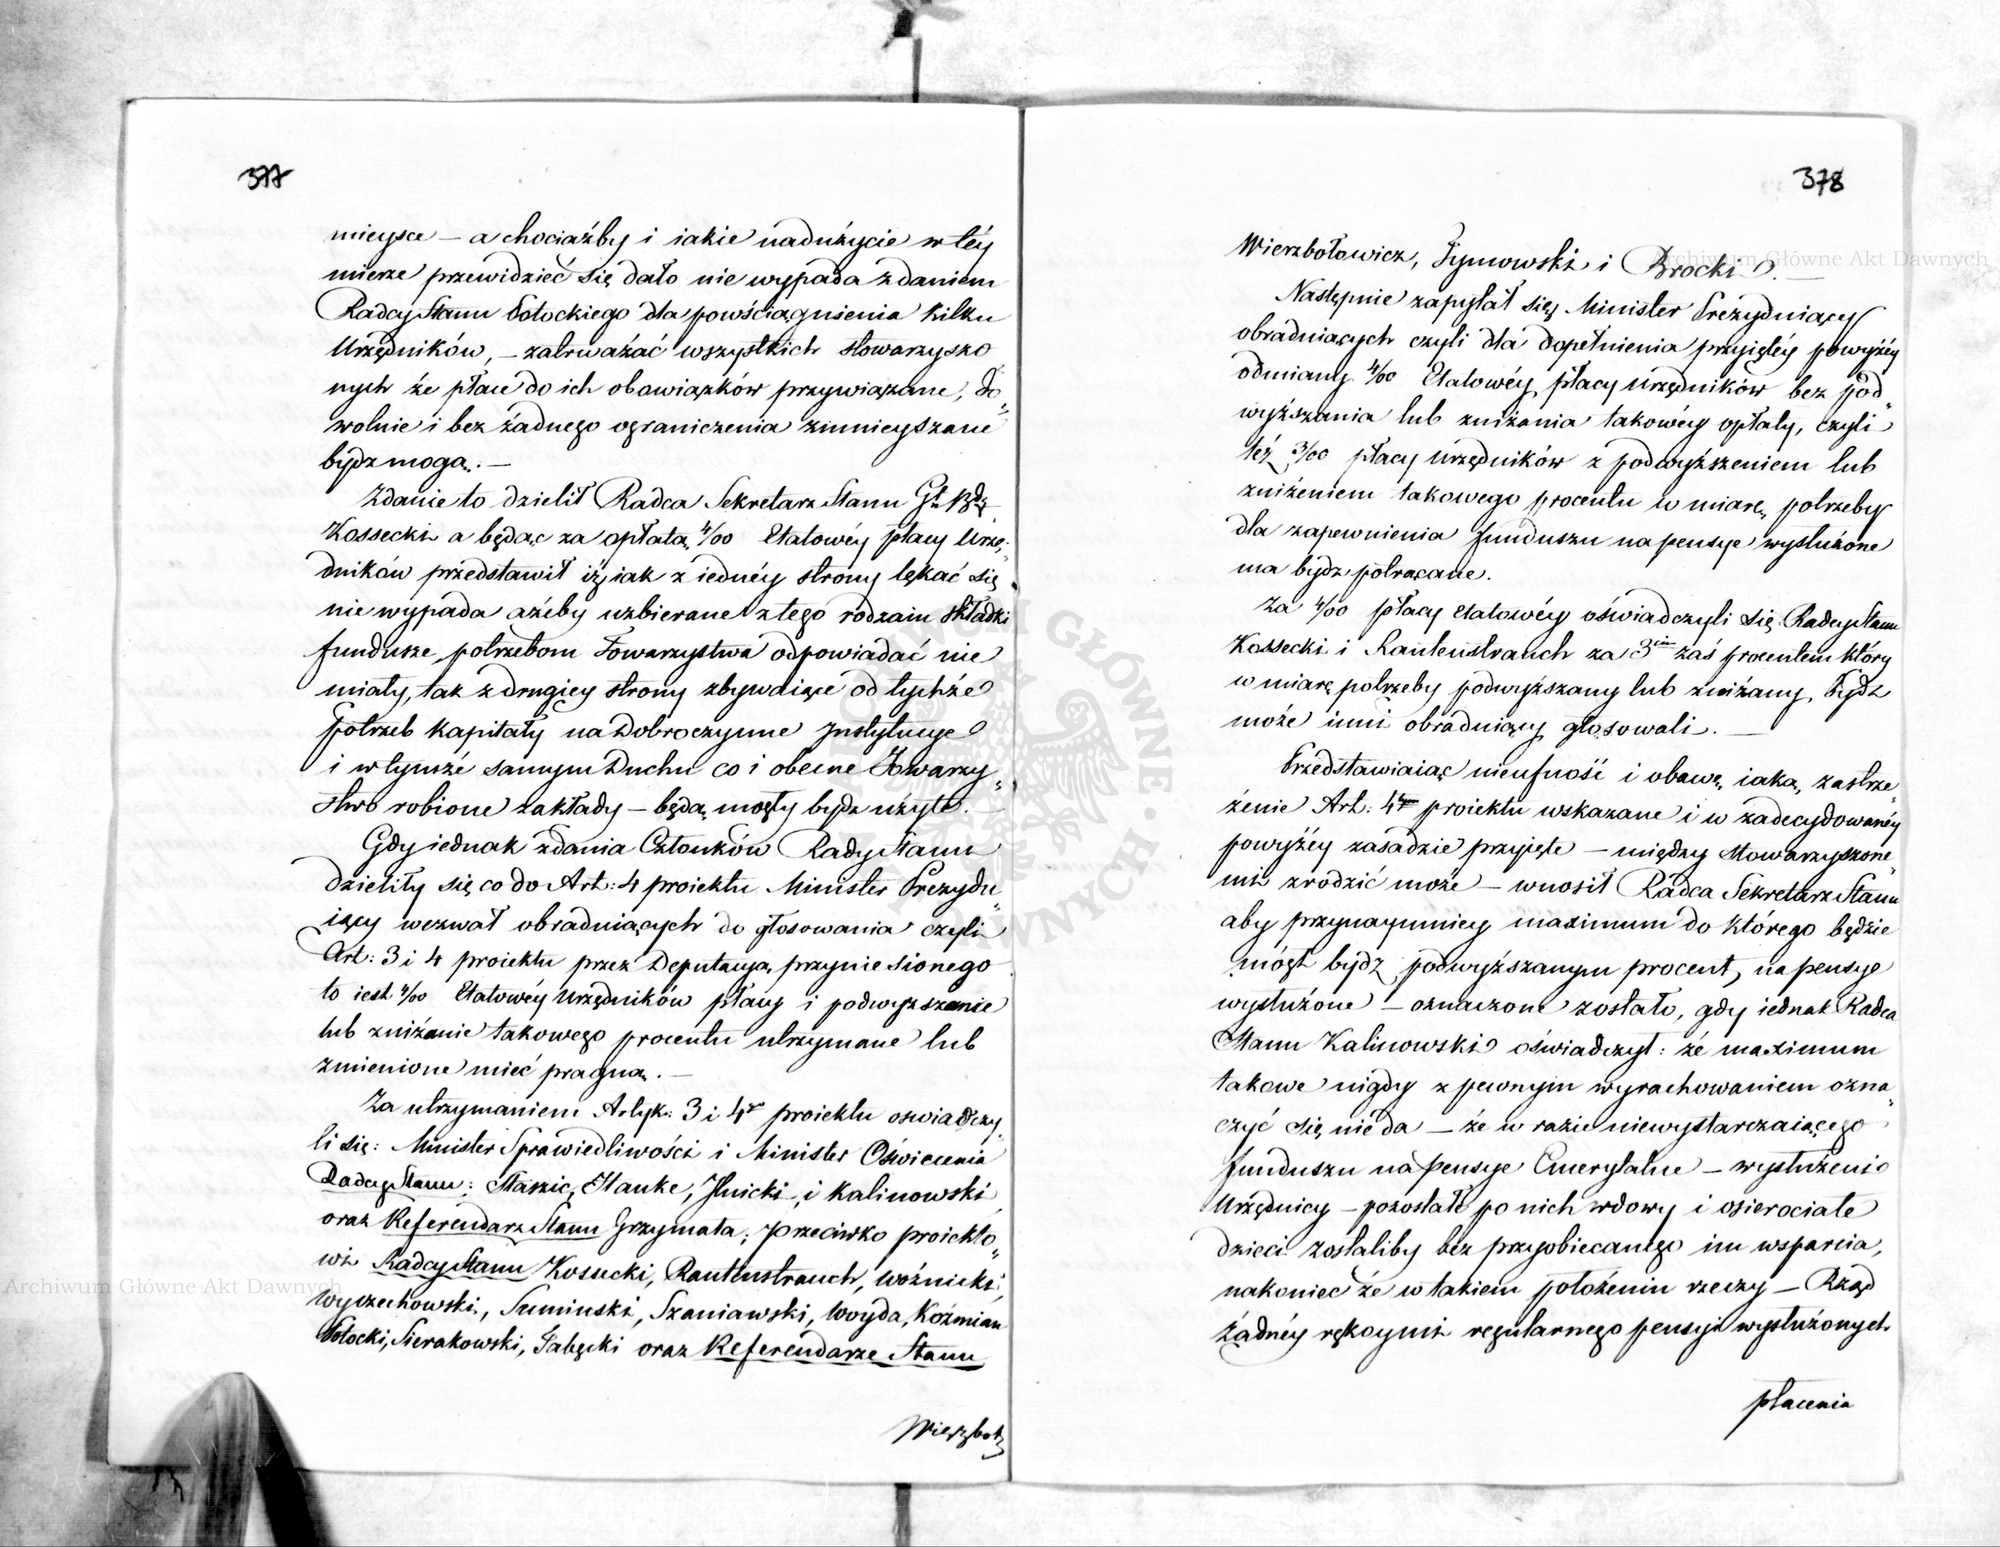 377
mieysce – a chociażby i iakie nadużycie w téy
mierze przewidzieć się dało nie wypada zdaniem
Radcy Stanu Potockiego dla powściągnienia kilku
Urzędników, – zatrważać wszystkich stowarzyszo
nych że płace do ich obowiązków przywiązane, do„
wolnie i bez żadnego ograniczenia zmnieyszane
bydz mogą. –
Zdanie to dzielił Radca Sekretarz Stanu Gł: Bdy
Kossecki a będąc za opłatą 4/00 Etatowéy płacy Urzę„
dników przedstawił iż iak z iednéy strony lękać się
nie wypada ażeby uzbierane z tego rodzaiu składki
fundusze potrzebom Towarzystwa odpowiadać nie
miały, tak z drugiey strony zbywaiące od tychże
potrzeb kapitały na Dobroczynne Instytucye
i w tymże samym Duchu co i obecne Towarzy„
stwo robione zakłady – będą mogły bydz użyte. –
Gdy iednak zdania Członków Rady Stanu
dzieliły się co do Art: 4 proiektu Minister Prezydu„
iący wezwał obraduiących do głosowania czyli
Art: 3 i 4 proiektu przez Deputacyą przyniesionego
to iest 4/00 Etatowéy Urzędników płacy i podwyższanie
lub zniżanie takowego procentu utrzymane lub
zmienione mieć pragną. –
Za utrzymaniem Artyk: 3 i 4go proiektu oświadczy„
li się: Minister Sprawiedliwości i Minister Oświecenia
Radcy Stanu: Staszic, Hauke, Jlnicki, i Kalinowski
oraz Referendarz Stanu Grzymała; przeciwko proiekto„
wi Radcy Stanu Kossecki, Rautenstrauch, Woźnicki,
Wyczechowski, Sumiński, Szaniawski, Woyda, Koźmian
Potocki, Sierakowski, Zabęcki oraz Referendarze Stanu
Wierzboł„
378
Wierzbołowicz, Tymowski i Brocki. –
Następnie zapytał się Minister Prezyduiący
obraduiących czyli dla dopełnienia przyiętéy powyżéy
odmiany 4/00 Etatowéy płacy Urzędników bez pod„
wyższania lub zniżania takowéy opłaty, czyli
téż 3/00 płacy Urzędników z podwyższeniem lub
zniżeniem takowego procentu w miarę potrzeby
dla zapewnienia funduszu na pensye wysłużone
ma bydz potrącane.
Za 4/00 płacy etatowéy oświadczyli się Radcy Stanu
Kossecki i Rautenstrauch za 3cim zaś procentem który
w miarę potrzeby podwyższany lub zniżany bydz
może inni obraduiący głosowali. –
Przedstawiaiąc nieufność i obawę iaką zastrze„
żenie Art: 4tym proiektu wskazane i w zadecydowanéy
powyżéy zasadzie przyięte – między stowarzyszone„
mi zrodzić może – wnosił Radca Sekretarz Stanu
aby przynaymniey maximum do którego będzie
mógł bydz podwyższanym procent, na pensye
wysłużone – oznaczone zostało, gdy iednak Radca
Stanu Kalinowski oświadczył: że maximum
takowe nigdy z pewnym wyrachowaniem ozna„
czyć się nie da – że w razie niewystarczaiącego
funduszu na pensye Emerytalne – wysłużeni
Urzędnicy – pozostałe po nich wdowy i osierociałe
dzieci zostaliby bez przyobiecanego im wsparcia,
nakoniec że w takiem położeniu rzeczy – Rząd
żadnéy rękoymi regularnego pensyi wysłużonych
płacenia
Archiwum Główne Akt Dawnych
Archiwum Główne Akt Dawnych